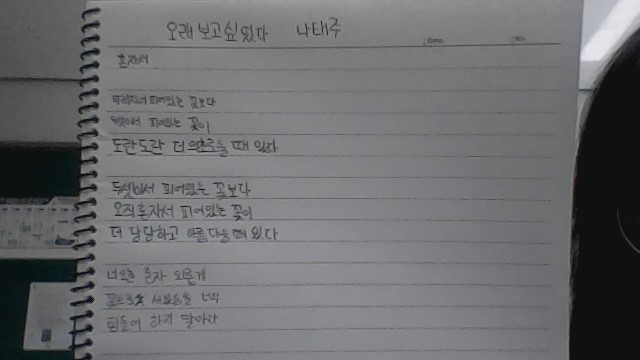 오래 보고 싶었다 나태주
혼자서
무리지어 피어있는 꽃보다
두셋이서 피어있는 꽃이
도란도란 더 의초로울 때 있다
두셋이서 피어있는 꽃보다
오직 혼자서 피어있는 꽃이
더 당당하고 아름다울 때 있다
너 오늘 혼자 외롭게
꽃으로 서 있음을 너무
힘들어 하지 말아라